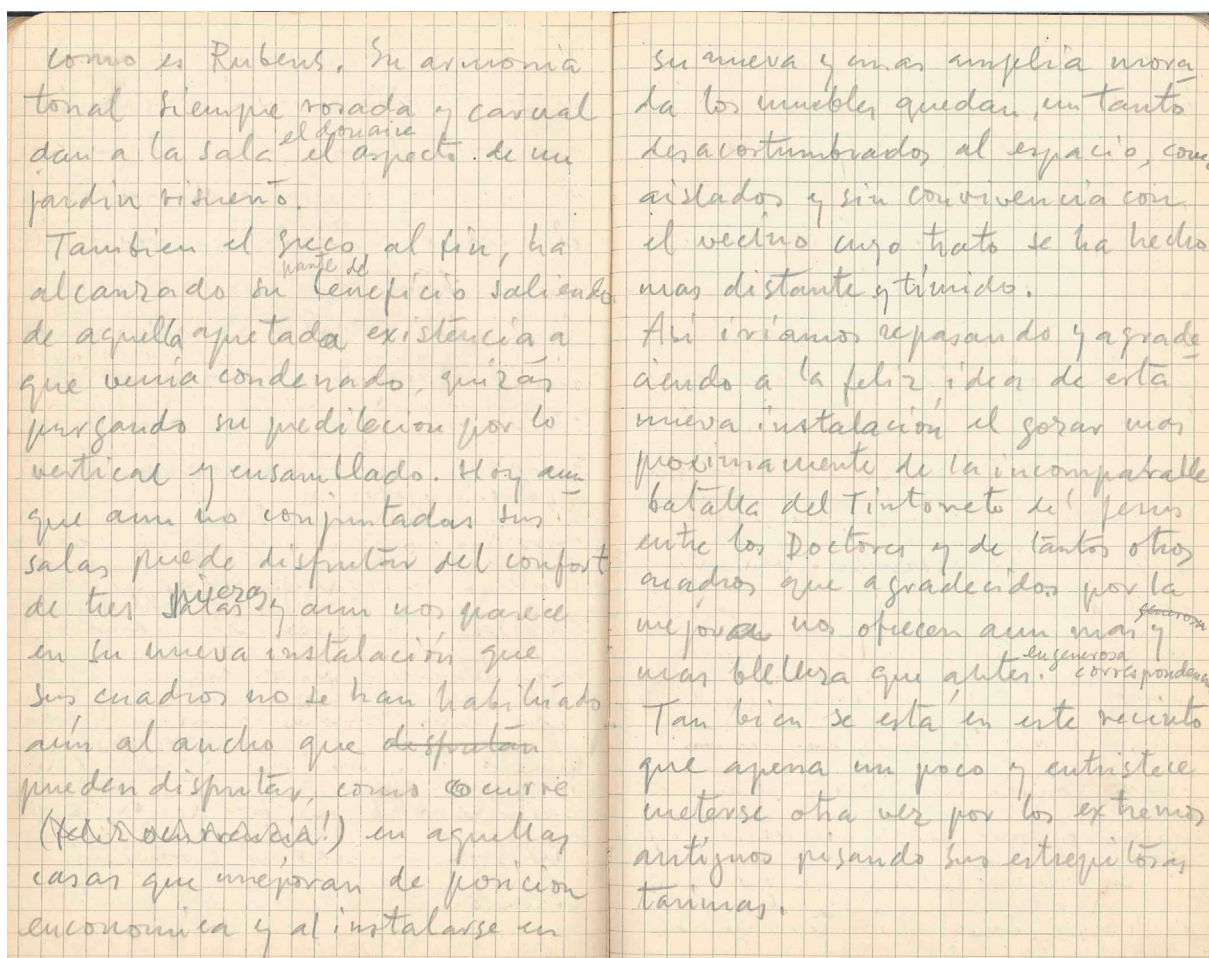 como es Rubens. Su armonia
tonal siempre rosada y carnal
el donaire
dan a la sala el aspecto de un
jardin risueño.
Tambien el Greco, al fin, ha
parte del
alcanzado su beneficio saliendo
de aquella apretada existencia a
que venia condenado, quizás
purgando su predilecion por lo
vertical y ensamblado. Hoy aun
que aun no conjuntadas sus
salas puede disfrutar del confort
de tres piezas y aun nos parece
en su nueva instalación que
sus cuadros no se han habituado
aún al ancho que disfrutan
pueden disfrutar, como ocurre
(feliz ocurrencia!) en aquellas
casas que mejoran de posicion
enconomica y al instalarse en
su nueva y mas amplia mora
da los muebles quedan, un tanto
desacostumbrados al espacio, como
aislados y sin convivencia con
el vecino cuyo trato se ha hecho
mas distante y tímido.
Asi iriamos repasando y agrade
ciendo a la feliz idea de esta
nueva instalación el gozar mas
proximamente de la incomparable
batalla del Tintoreto de Jesus
entre los Doctores y de tantos otros
cuadros que agradecidos por la
generosa
mejora nos ofrecen aun mas y
en generosa
mas blelleza que antes. correspondencia
Tan bien se está en este recinto
que apena un poco y entristece
meterse otra vez por los extremos
antiguos pisando sus estrepitosas
tarimas.